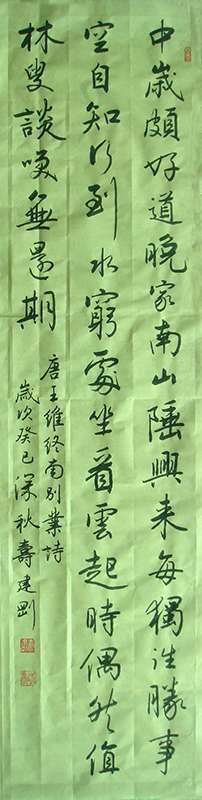 中歲頗好道晚家南山陲興来每獨往勝事
空自知行到水窮處坐看雲起時偶然值
林叟談咲無還期
唐王維終南别業詩
歲次癸巳深秋壽建剛